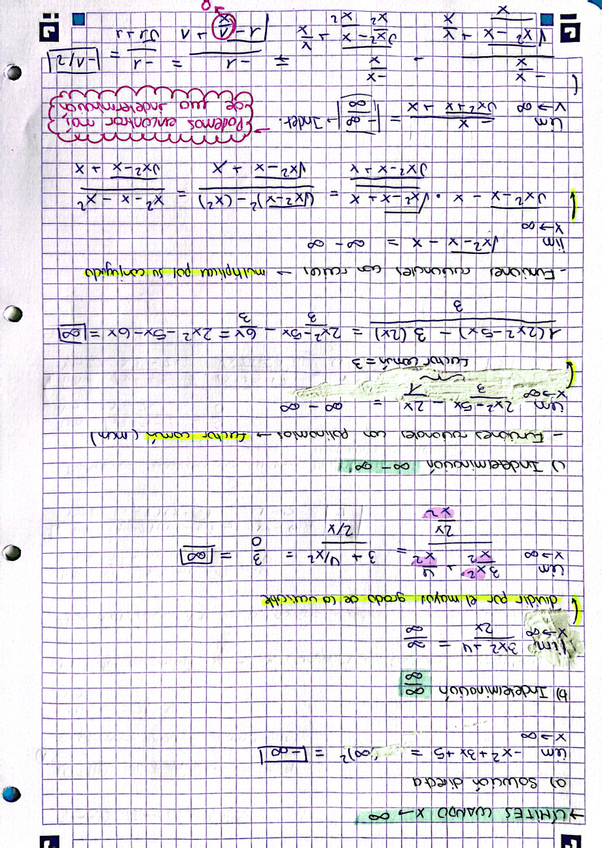 → LIMITES CUANDO X → ∞
a) Solución directa
lim x→∞ -x² + 3x + 5 = (∞)² = -∞
b) Indeterminación ∞/∞
lim x→∞ (3x² + 4)/(2x) = ∞/∞
dividir por el mayor grado de la variable
lim x→∞ (3x²/x² + 4/x²)/(2x/x²) = (3 + 4/x²)/(2/x) = 3/0 = ∞
c) Indeterminación ∞ - ∞
- Funciones racionales con polinomios → factor común (mcm)
lim x→∞ (2x² - 5x)/3 - 2x/1 = ∞ - ∞
factor común = 3
(1(2x² - 5x) - 3(2x))/3 = (2x² - 5x)/3 - 6x/3 = 2x² - 5x - 6x = ∞
- Funciones racionales con raíces → multiplicar por su conjugado
lim x→∞ √x² - x - x = ∞ - ∞
√x² - x - x · (√x² - x + x)/(√x² - x + x) = ((√x² - x)² - (x²))/(√x² - x + x) = (x² - x - x²)/(√x² - x + x)
lim x→∞ -x/(√x² + x + x) = -∞/∞ → Indet.
- Podemos encontrar más de una indeterminación
(-x/x)/((√x² - x)/x + x/x) = (-x/x)/(√x²/x² - x/x² + x/x) = -1/(√1 - 1/x + 1) = -1/(√1 + 1) = -1/2
0